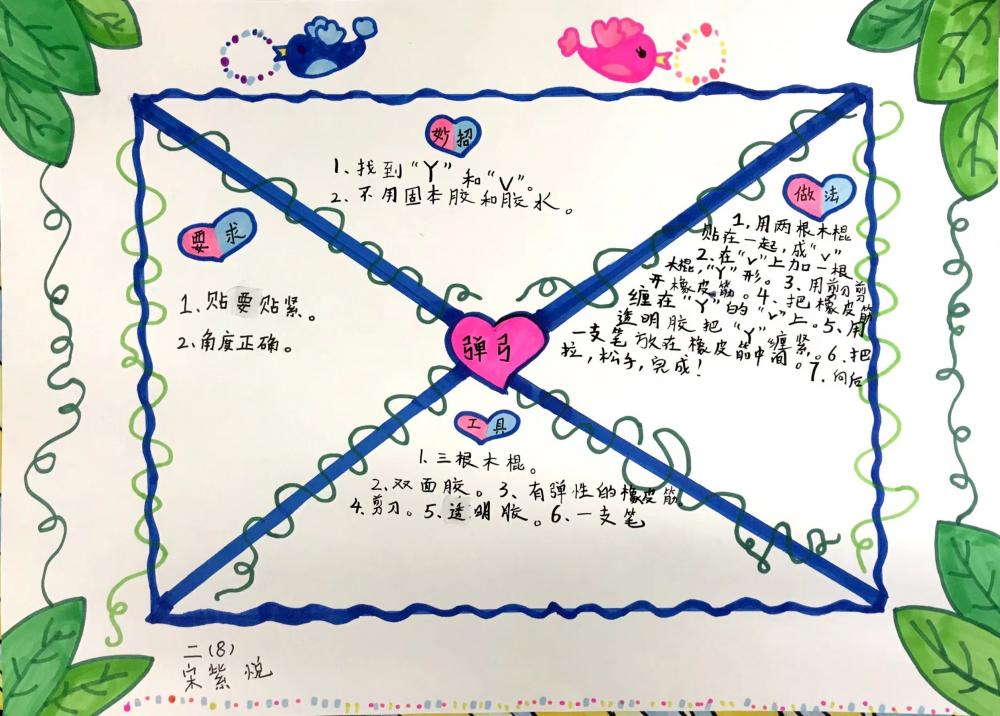 妙招
1、找到“Y”和“V”。
2、不用固本胶和胶水。
要求
1、贴要贴紧。
2、角度正确。
弹弓
做法
1、用两根木棍
贴在一起，成“v”
2、在“v”上加一根
木棍，“Y”形。3、用剪刀剪
开橡皮筋。4、把橡皮筋
缠在“Y”的“v”上。5、用
透明胶把“Y”缠紧。6、把
一支笔放在橡皮筋中间。7、向后
拉，松手，完成！
工具
1、三根木棍。
2、双面胶。3、有弹性的橡皮筋。
4、剪刀。5、透明胶。6、一支笔
二（8）
宋紫悦